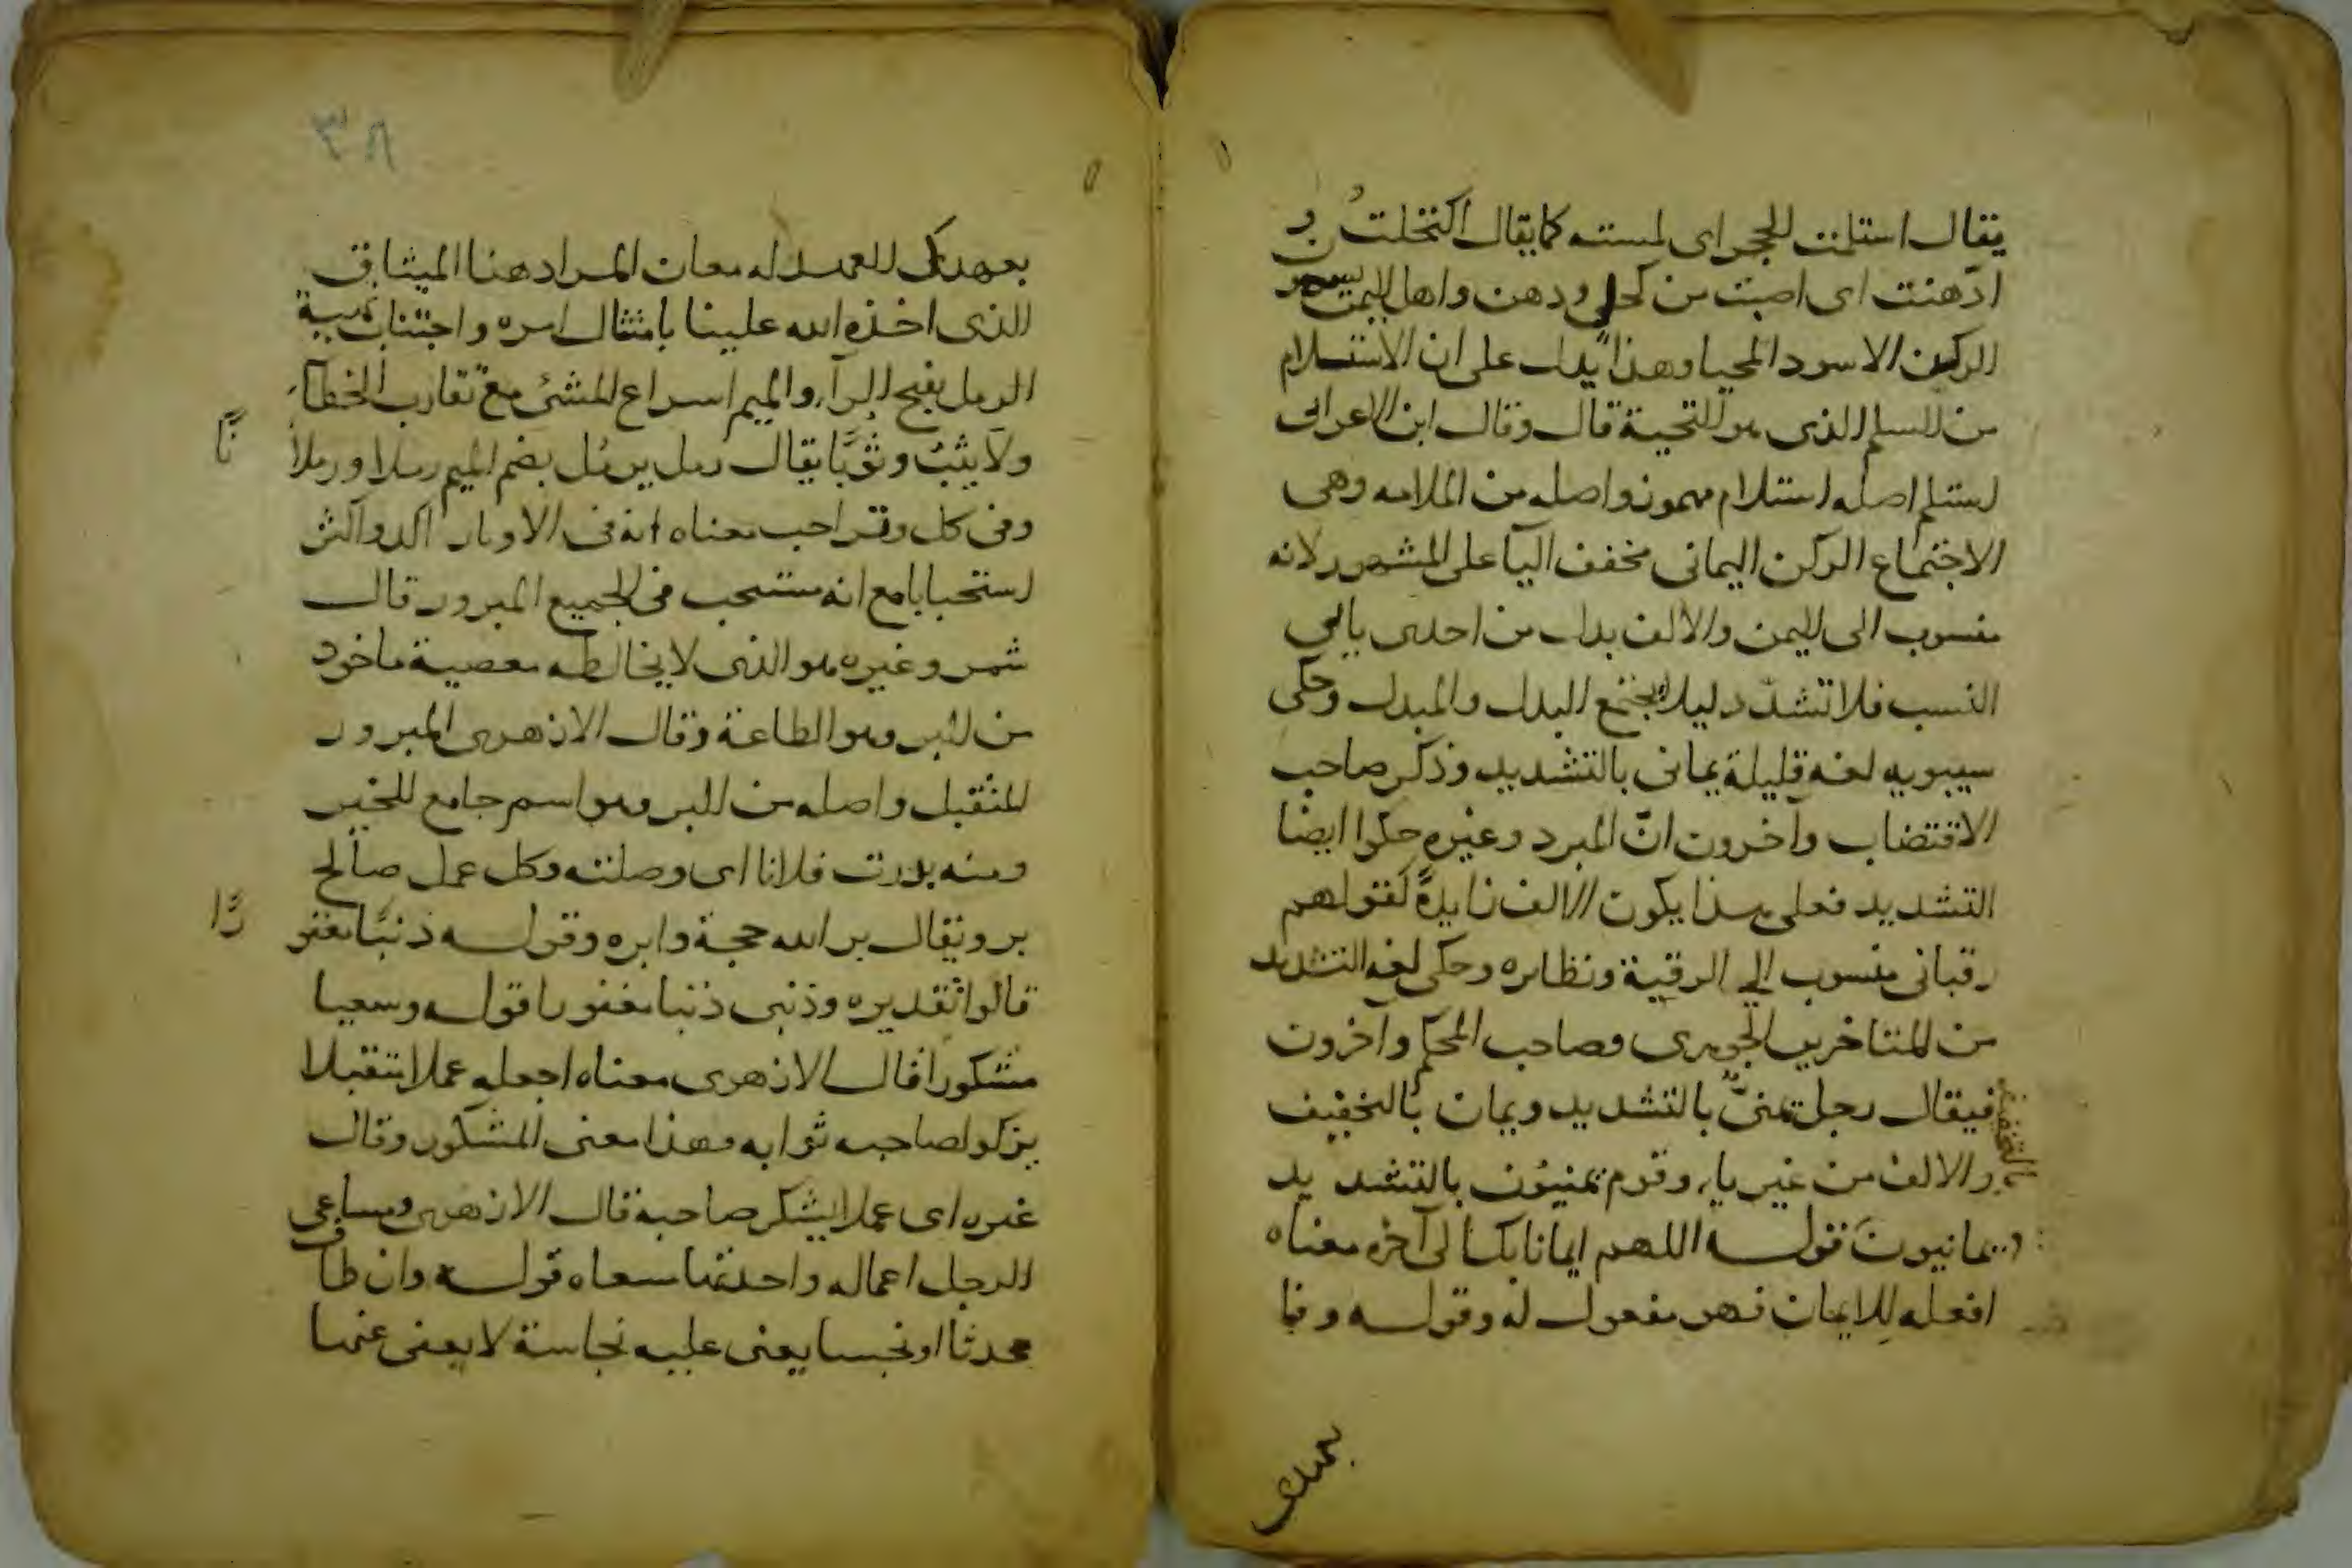 يقال استلمت الحجر اى لمسته كما يقال اكتحلت و
ادّهنت اى اصبت من كحل ودهن واهل اليمن يسمون
الركن الاسود المحيا وهذا يدل على ان الاستلام
من السلم الذى هو التحية قال وقال ابن الاعرابى
استلم اصله استلام مهموز واصله من الملامه وهى
الاجتماع الركن اليمانى مخفف اليآ على المشهور لانه
منسوب الى اليمن والالف بدل من احدى يايى
النسب فلا تشدّد ليلا يجتمع البدل والمبدل وحكى
سيبويه لغه قليلة يمانى بالتشديد وذكر صاحب
الاقتضاب وآخرون انّ المبرد وغيره حكوا ايضا
التشديد فعلى هذا يكون الالف زايدةً كقولهم
رقبانى منسوب الى الرقبة ونظايره وحكى لغه التشديد
من المتاخرين الجوهرى وصاحب المحكم وآخرون
فيقال رجل يمنىّ بالتشديد ويمان بالتخفيف
والالف من غير ياء وقوم يمنيون بالتشديد
ويمانيون قوله اللهم ايمانا بك الى آخره معناه
افعله للايمان فهو مفعول له وقوله وفا
بعهدك
٣٨
بعهدك للعهد له معان المراد هنا الميثاق
الذى اخذه الله علينا بامتثال امره واجتناب نهيه
الرمل بفتح الرآء والميم اسراع المشى مع تقارب الخطآ
ولا يثب وثوبًا يقال رمل يرمل بضم الميم رملا ورملانًا
وفى كل وتر احب معناه انه فى الاوتار اكد واكثر
استحبابا مع انه مستحب فى الجميع المبرور قال
شمر وغيره هو الذى لا يخالطه معصية ماخوذ
من البر وهو الطاعة وقال الازهرى المبرور
المتقبل واصله من البر وهو اسم جامع للخير
ومنه بررت فلانا اى وصلته وكل عمل صالح
بر ويقال بر الله حجة وابره وقوله ذنبًا مغفورًا
قالوا تقديره وذنبى ذنبا مغفورا قوله وسعيا
مشكورا قال الازهرى معناه اجعله عملا متقبلا
يزكو لصاحبه ثوابه وهذا معنى المشكور وقال
غيره اى عملا يشكر صاحبه قال الازهرى ومساعى
الرجل اعماله واحدتها مسعاه قوله وان طاف
محدثا او نجسا يعنى عليه نجاسة لا يعفى عنها